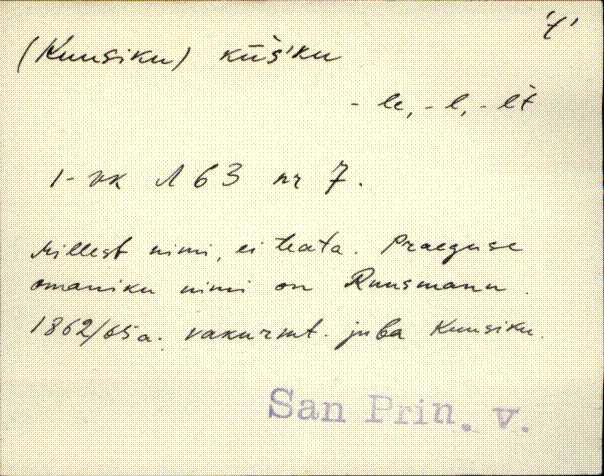 '7'
(Kuusiku) kūš'ku
- le, - l, - lt
1-vk A 63 nr 7.
Millest nimi, ei teata. Praeguse
omaniku nimi on Ruusmann.
1862/65 a. vakurmt. juba Kuusiku.
San Prin. v.